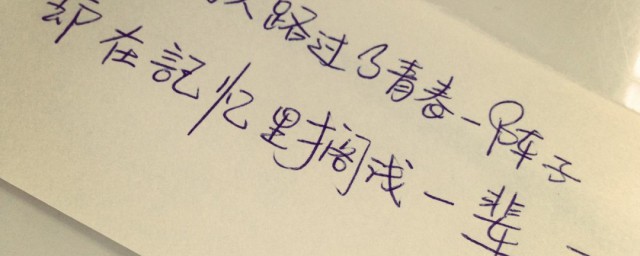 人路过了青春一阵子
却在記忆里搁浅一辈